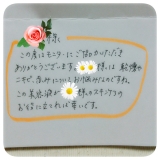 様
この度はモニターにご協力いただき
ありがとうございます。 様は 乾燥や
ニキビ、赤みについてお悩みなのですね。
この美容液が 様のスキンケアの
お役に立てれば幸いです。